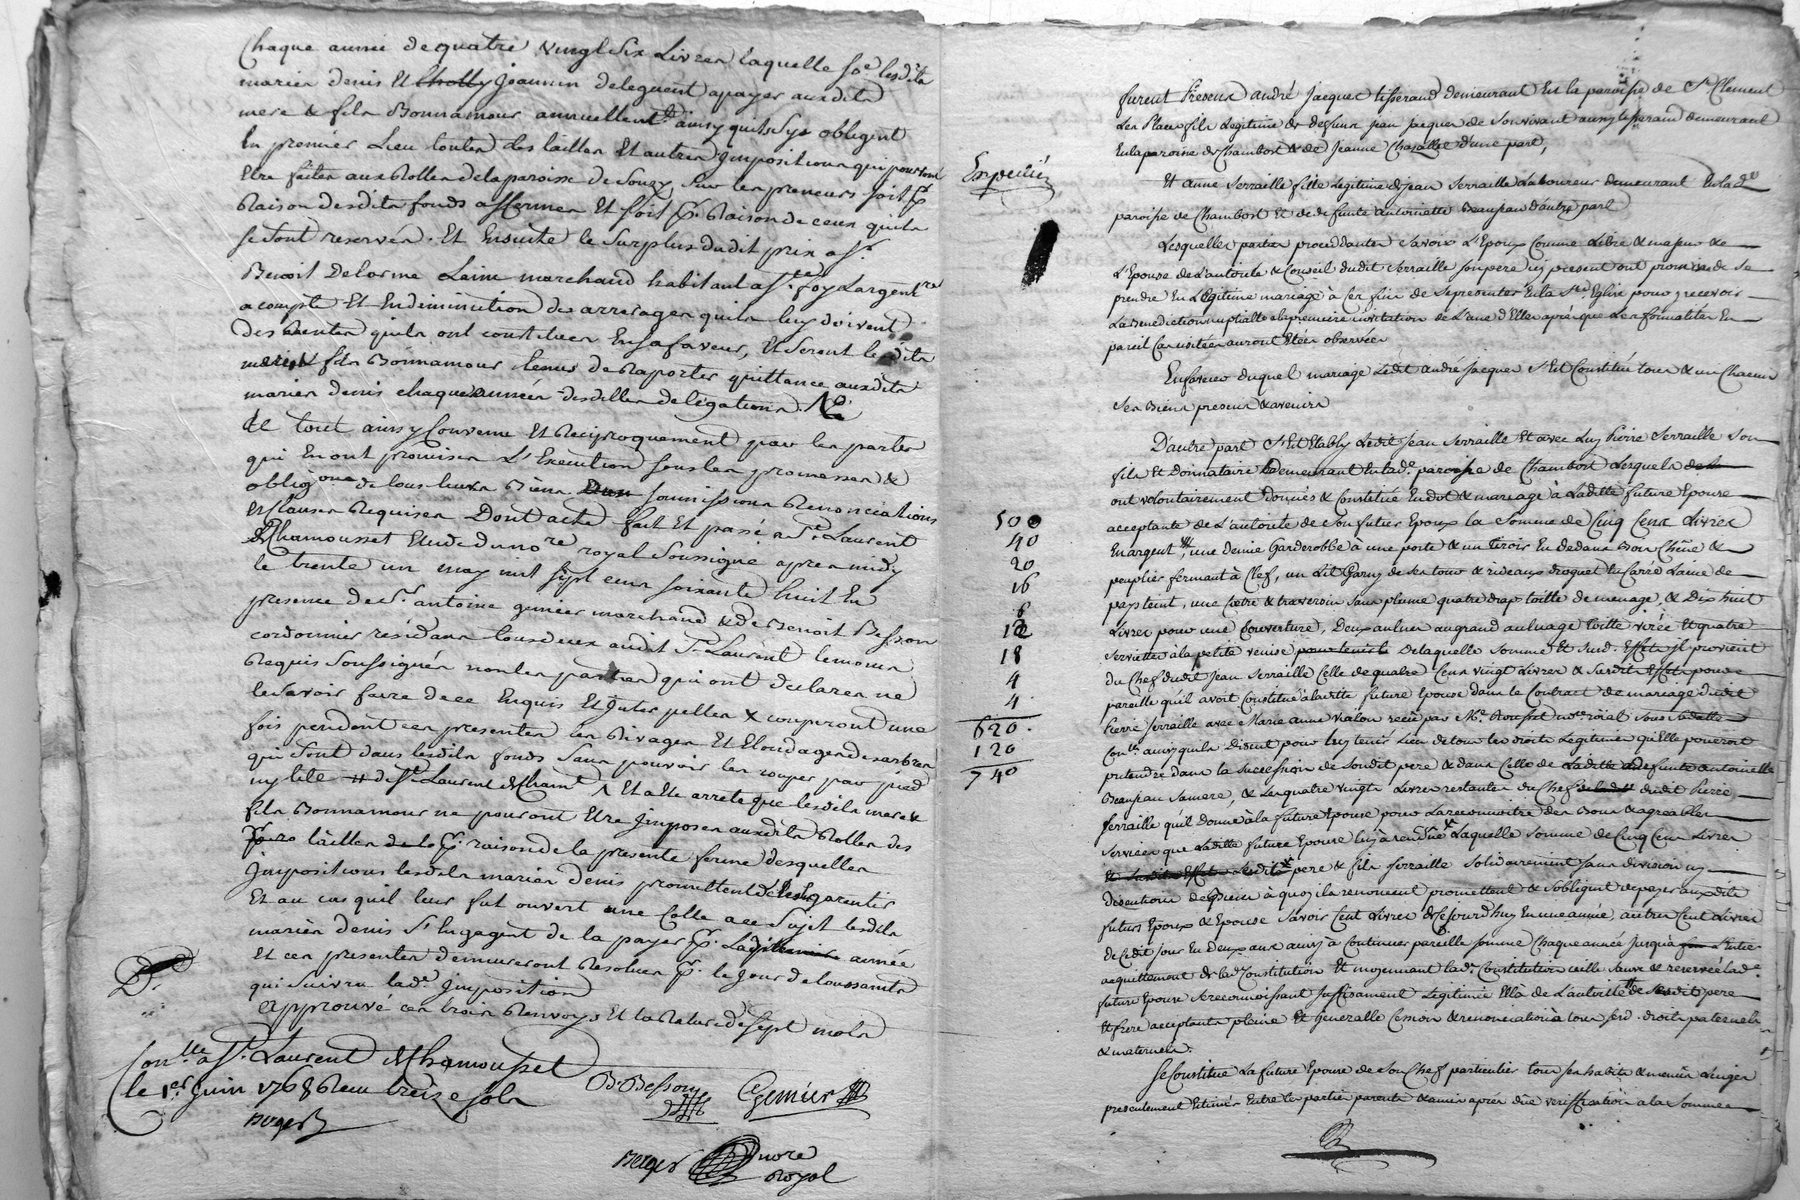 Chaque année de quatre vingt six Livres laquelle so.e lesdits
mariés denis et Cholly Joannin deleguent a payer auxdits
mere & fils Bonnamour annuellem.t ainsy quils sy obligent
En premier Lieu toutes les tailles Et autres Impositions qui pourront
Etre faites aux Rolles dela paroisse de Souzy sur les preneurs soit p.r
Raison desdits fonds affermés Et soit p.r Raison de ceux quils
se sont reservés. Et Ensuite le Surplus dudit prix a s.r
Benoit Delorme Laine marchand habitant a s.te foy Largent.re
a compte Et En diminution des arrerages quils luy doivent
des Rentes quils ont constituées En sa faveur, Et seront lesdits
mere & fils Bonnamour tenus de Raporter quittance auxdits
mariés denis chaque année desdittes delegations.
Le tout ainsy Convenu Et Reciproquement par les parties
qui En ont promis L'Execution sous les promesses de
oblig.ons de tous leurs Biens soumissions Renonciations
Et Clauses Requises Dont acte fait Et passé a S.t Laurent
de Chamousset Etude du no.re royal Soussigné apres midy
le trente un may mil sept cent soixante huit En
presence de s.r antoine gemier marchand & de Benoit Besson
cordonnier residans tous deux audit S.t Laurent temoins
Requis soussignés non les parties qui ont declaré ne
le savoir faire de ce Enquis Et Interpellés x couperont une
fois pendent ces presentes les Rivages Et Elondages des arbres
qui sont dans lesdits fonds sans pouvoir les couper par pied
ny tete # de S.t Laurent de Cham.t ^ Et a Eté arreté que lesdits mere &
fils Bonnamour ne pouront Etre Imposés auxdits Rolles des
tailles p.r raison de la presente ferme desquelles
Impositions lesdits mariés denis promettent de les garentir
Et au cas quil leur fut ouvert une Cotte a ce Sujet lesdits
mariés denis s'Engagent de la payer p.r Laditte année
Et ces presentes demeureront Resolues p.r le Jour de toussaints
qui suivra lad.e Imposition
approuvé ces trois Renvoys Et la Rature de sept mots
D.
Con.lle a S.t Laurent de Chamousset
le 1.er Juin 1768 Reçu treize sols
Berger
B. Besson
Gemier
Berger no.re Royal
Expedié
furent Presens andré Jacques tisserand demeurant En la paroisse de S.t Clement
Les Places fils Legitime de deffunt Jean Jacques de Son vivant aussy tisserand demeurant
En la paroisse de Chambost & de Jeanne Chazalle d'une part,
Et anne Serraille fille Legitime de Jean Serraille Laboureur demeurant En lad.e
paroisse de Chambost Et de defunte antoinette Beaujean d'autre part
Lesquelles parties procedantes Savoir L'Epoux Comme Libre & majeur &
L'Epouse de L'autorité & Conseil dudit Serraille son pere icy present ont promis de se
prendre En Legitime mariage à Ces fins de se presenter En la S.te Eglise pour y recevoir
La Benediction nuptialle a la premiere invitation de L'une d'Elles après que Les formalités En
pareil Cas usitées auront Etées observées
En faveur duquel mariage Ledit andré Jacques S'Est Constitué tous & un Chacun
Ses Biens presens & avenirs
D'autre part S'Est Etably Ledit Jean Serraille Et avec Luy Pierre Serraille Son
fils Et Donnataire demeurant En lad.e paroisse de Chambost Lesquels de
ont volontairement Donnés & Constitué En dot & mariage à Laditte future Epouse
acceptante de L'autorité de Son futur Epoux la Somme de Cinq Cens Livres
500
En argent, une demie Garderobbe à une porte & un tiroir En dedans Bon Chêne &
40
peuplier fermant à Clef, un Lit Garny de Ses tours & rideaux droguet En Carré Laine de
20
pays teint, une Coëtre & traversin Sans plume quatre drap toille de menage, & Dix huit
16
6
Livres pour une Couverture, Deux aulnes au grand aulnage toille virée Et quatre
12
Serviettes à la petite venise De laquelle Somme & Surd. Effets il provient
18
du Chef dudit Jean Serraille Celle de quatre Cens vingt Livres & Surdit Effets pour
4
pareille qu'il avoit Constitué a laditte future Epouse dans le Contract de mariage dudit
4
Pierre Serraille avec Marie anne Vialon reçu par M.e Rousset no.re roial Sous Sadatte
620.
Con.lle ainsy qu'ils Disent pour luy tenir Lieu de tous les droits Legitimes qu'Elle pouroit
120
pretendre dans la Succession de Sondit pere & dans Celle de Laditte defunte antoinette
740
Beaujean Sa mere, & Les quatre vingts Livres restantes du Chef dudit Pierre
Serraille qu'il donne à la future Epouse pour La reconnoitre des Bons & agreables
Services que Laditte future Epouse luy à rendus Laquelle Somme de Cinq Cens Livres
Et Surdits Effets Lesdits pere & fils Serraille Solidairement Sans division ny
discution de Biens à quoy ils renoncent promettent & S'obligent de payer auxdits
futurs Epoux & Epouse Savoir Cent Livres de Ce jourd'huy En une année, autres Cent Livres
de Cedit jour En Deux ans ainsy à Continuer pareille Somme Chaque année Jusqu'à L'Entier
acquittement de lad.e Constitution Et moyennant lad.e Constitution
future Epouse Se reconnoissant Suffisament Legitimée Et à de L'autorité de Sesdits pere
Et frere acceptants pleine Et generalle Cession & renonciation à tous Sesd. droits paternels
& maternels.
Se Constitue La future Epouse de Son Chef particulier tous Ses habits & menus Linges
presentement Estimés Entre les parties parents & amis apres düe veriffication a la Somme